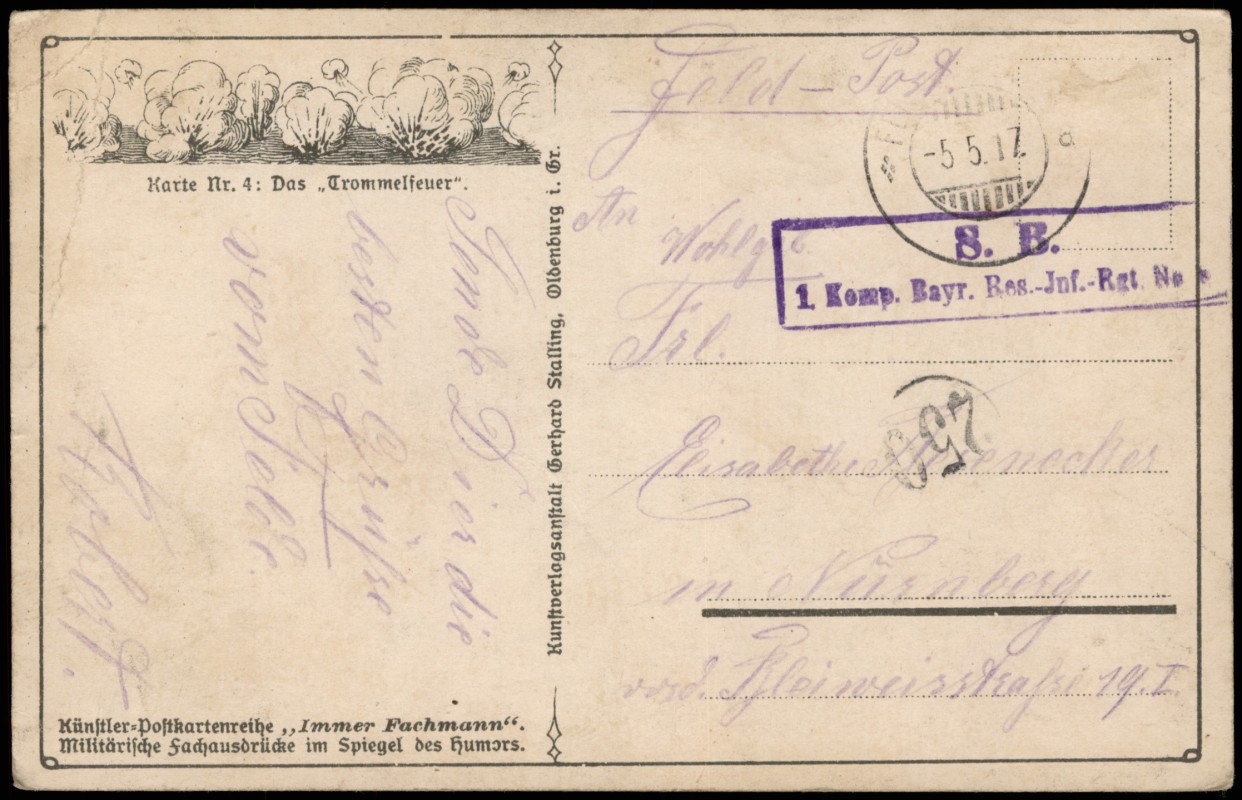 Karte Nr. 4: Das „Trommelfeuer“.
Sende Dir die
besten Grüße
vom
Künstler=Postkartenreihe „Immer Fachmann“.
Militärische Fachausdrücke im Spiegel des Humors.
Kunstverlagsanstalt Gerhard Stalling, Oldenburg i. Gr.
Feld – Post.
-5 5.17.
a
An
S. B.
1. Komp. Bayr. Res.-Inf.-Rgt. No
Frl.
Elisabethe
in Nürnberg
vord. Bleiweisstraße 19.I.